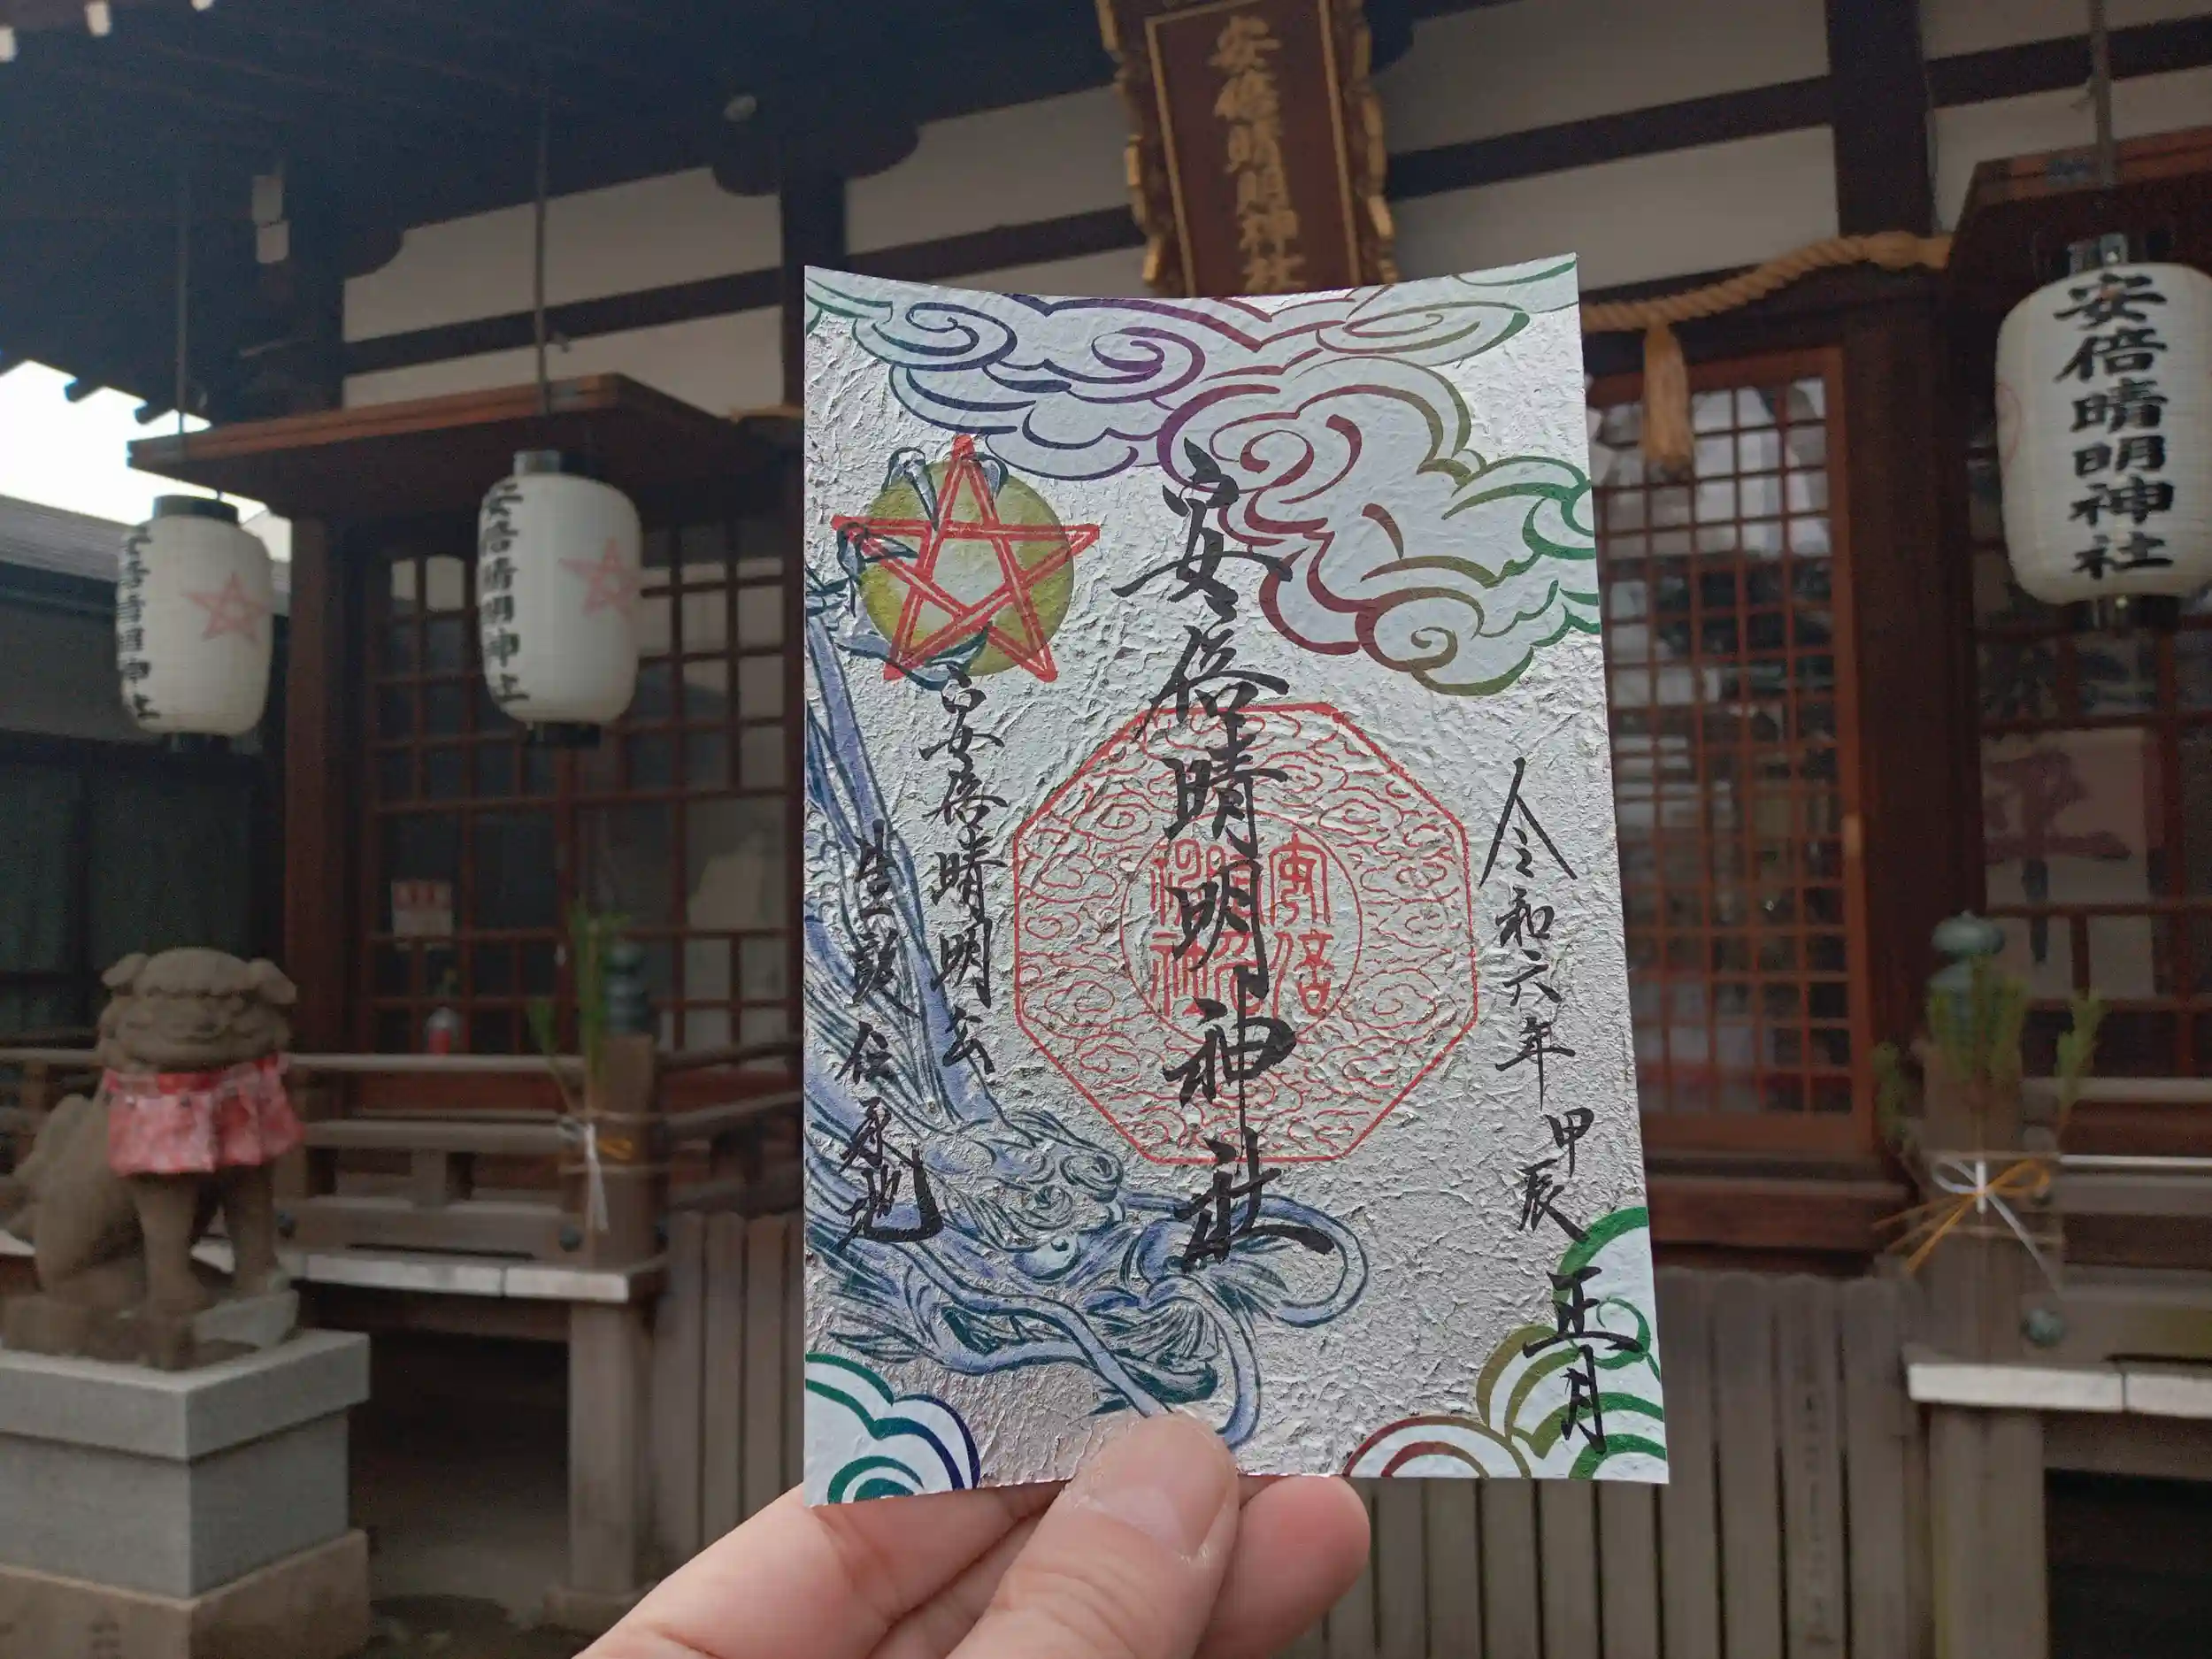 安倍晴明神社
安倍晴明神社
安倍晴明神社
安倍晴明神社
令和六年甲辰正月
安倍晴明神社
安倍晴明公
生誕伝承地
安倍